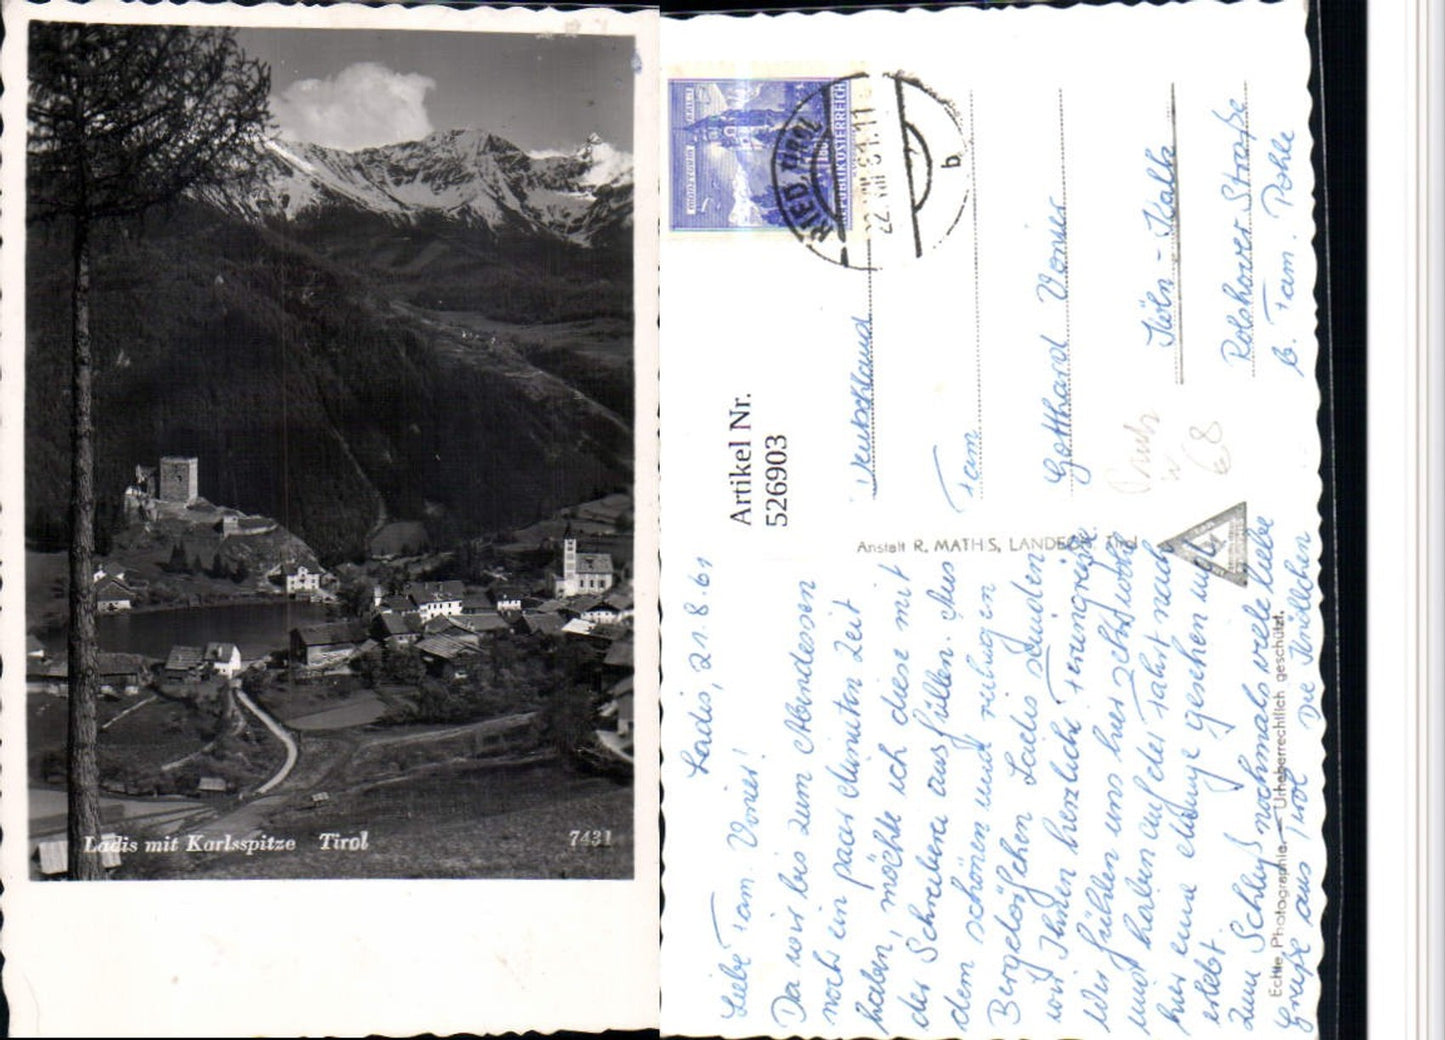 Ladis mit Karlsspitze Tirol
7431
REPUBLIK ÖSTERREICH
RIED, TIROL
b
Artikel Nr.
526903
Deutschland
Fam.
Gotthard Vonier
Köln-Kalk
Rolshover Straße
b. Fam. Pohle
Anstalt R. MATHIS, LANDECK, Tirol
Echte Photographie — Urheberrechtlich geschützt.
Ladis, 21.8.61
Liebe Fam. Vonier!
Da wir bis zum Abendessen
noch ein paar Minuten Zeit
haben, möchte ich diese mit
des Schreibens ausfüllen. Aus
dem schönen und ruhigen
Bergdörfchen Ladis senden
wir Ihnen herzliche Feriengrüße.
Wir fühlen uns hier sehr wohl
und haben auf der Fahrt nach
hier eine Menge gesehen und
erlebt.
Zum Schluß nochmals viele liebe
Grüße aus Tirol Die